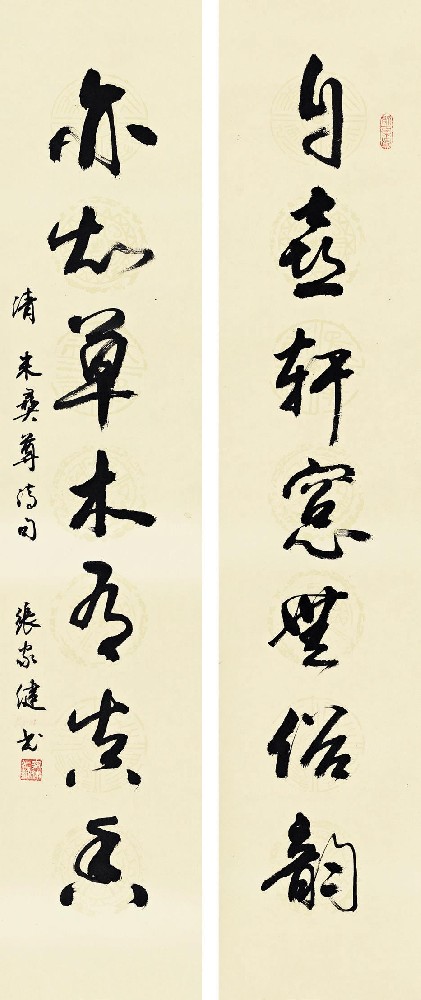 自喜軒窓無俗韵
亦知草木有真香
清 朱彝尊詩句 張家健书